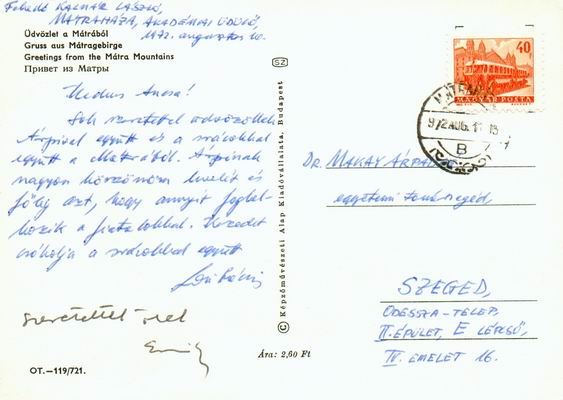 Feladó: KALMÁR LÁSZLÓ,
MÁTRAHÁZA, AKADÉMIAI ÜDÜLŐ,
1972. augusztus 10.
Üdvözlet a Mátrából
Gruss aus Mátragebirge
Greetings from the Mátra Mountains
Привет из Матры
Kedves Anna!
Sok szeretettel üdvözöllek
Árpival együtt és a srácokkal
együtt a Mátrából. Árpinak
nagyon köszönöm levelét és
főleg azt, hogy annyit foglal-
kozik a fiatalokkal. Kezedet
csókolja a srácokkal együtt
Laci bácsi
szeretettel
OT.—119/721.
SZ
© Képzőművészeti Alap Kiadóvállalata, Budapest
Ára: 2,60 Ft
40
MAGYAR POSTA
972 AUG. 11
B
DR. MAKAY ÁRPÁD
egyetemi tanársegéd,
SZEGED,
ODESSZA-TELEP,
II. ÉPÜLET, E LÉPCSŐ,
IV. EMELET 16.